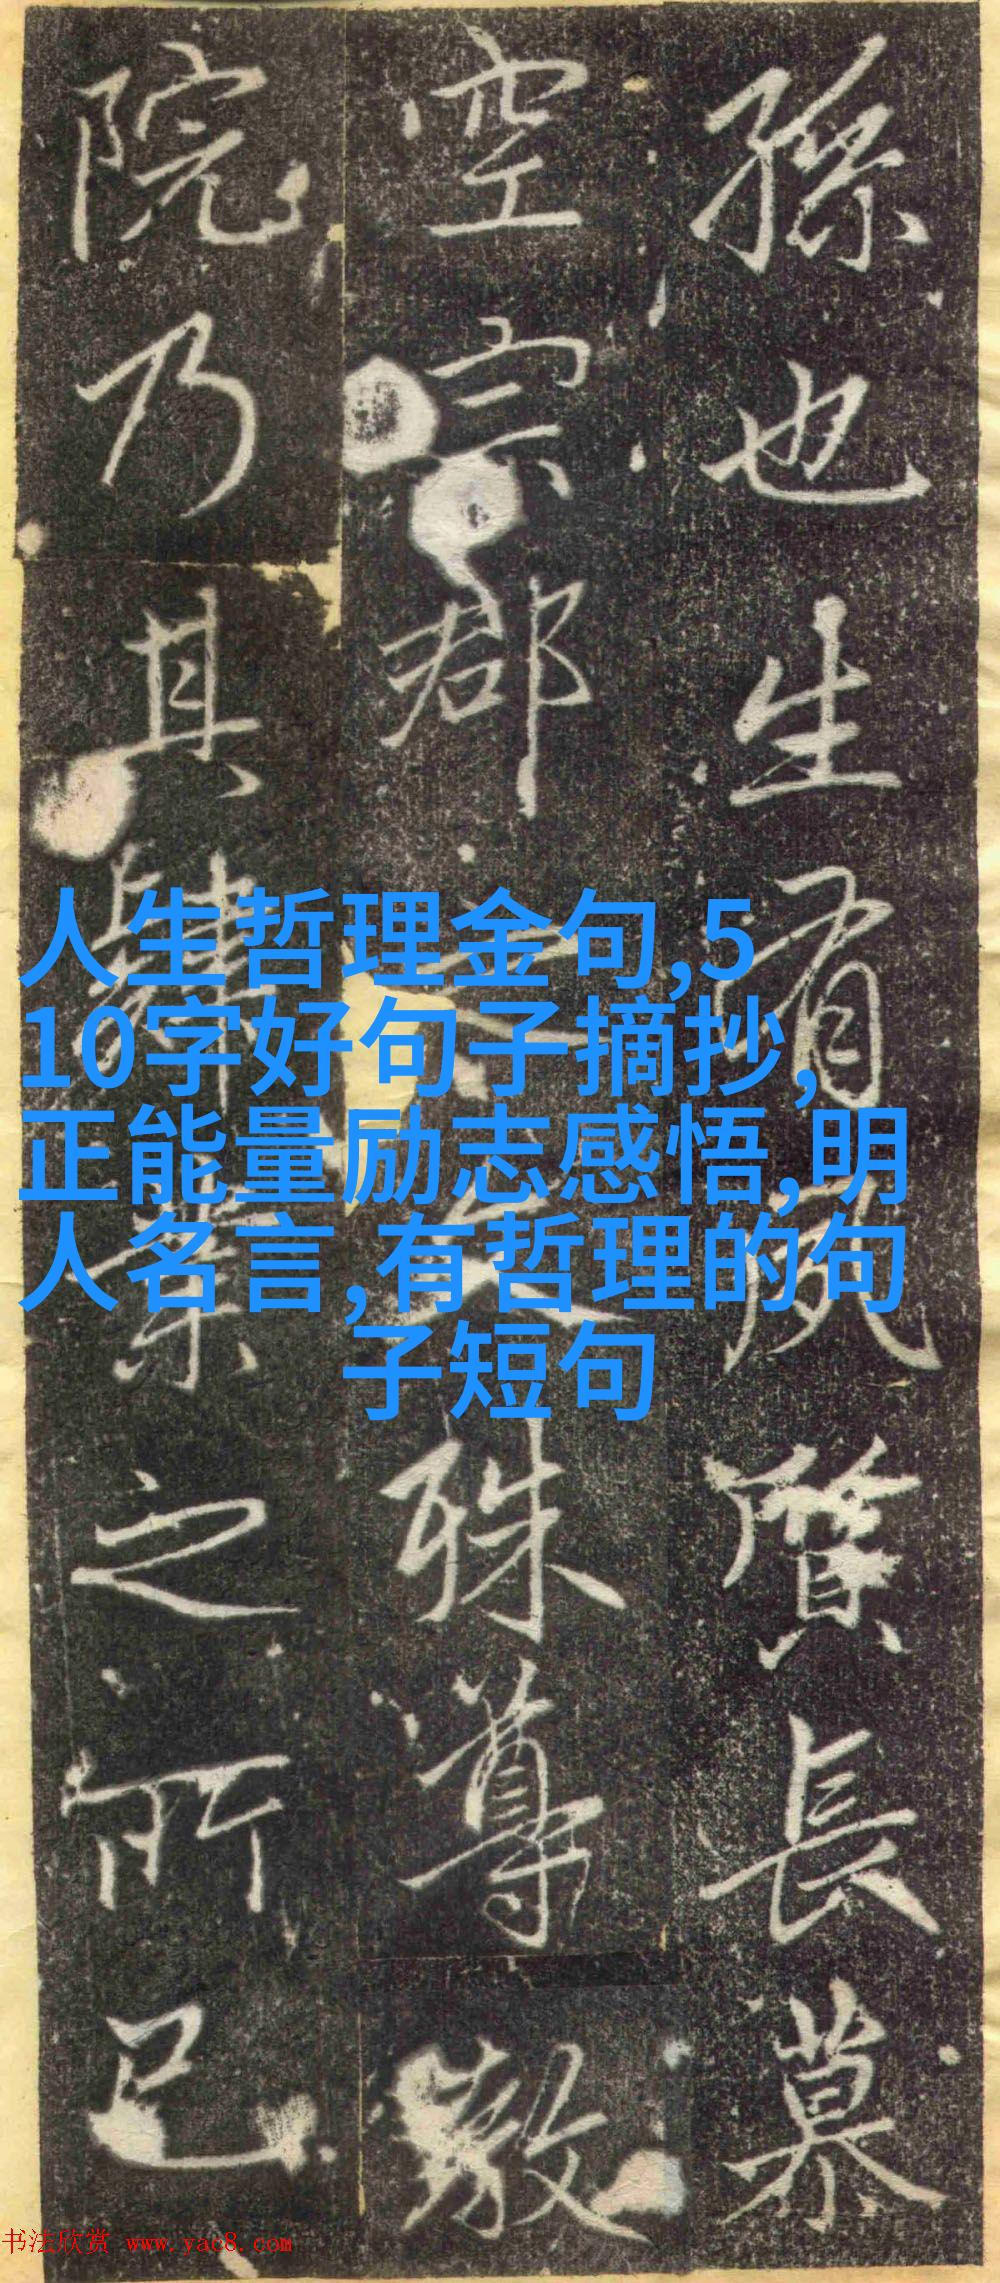 孫也生有夙質長慕
空宗郡文殊尊
院乃其肆業之所已
人生哲理金句,5
10字好句子摘抄,
正能量励志感悟,明
人名言,有哲理的句
子短句
书法欣赏 www.yac8.com